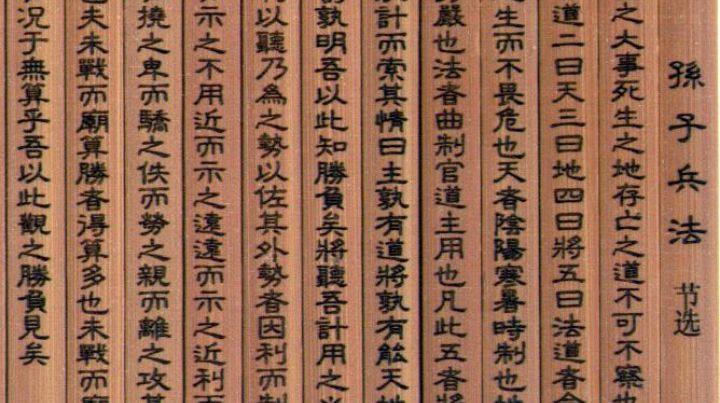 孫子兵法 节选
之大事死生之地存亡之道不可不察也
道二曰天三曰地四曰將五曰法道者令
生而不畏危也天者陰陽寒暑時制也地
嚴也法者曲制官道主用也凡此五者將
計而索其情曰主孰有道將孰有能天地
孰明吾以此知勝負矣將聽吾計用之必
利以聽乃為之勢以佐其外勢者因利而制
示之不用近而示之遠遠而示之近利而
撓之卑而驕之佚而勞之親而離之攻其
也夫未戰而廟算勝者得算多也未戰而廟
況于無算乎吾以此觀之勝負見矣